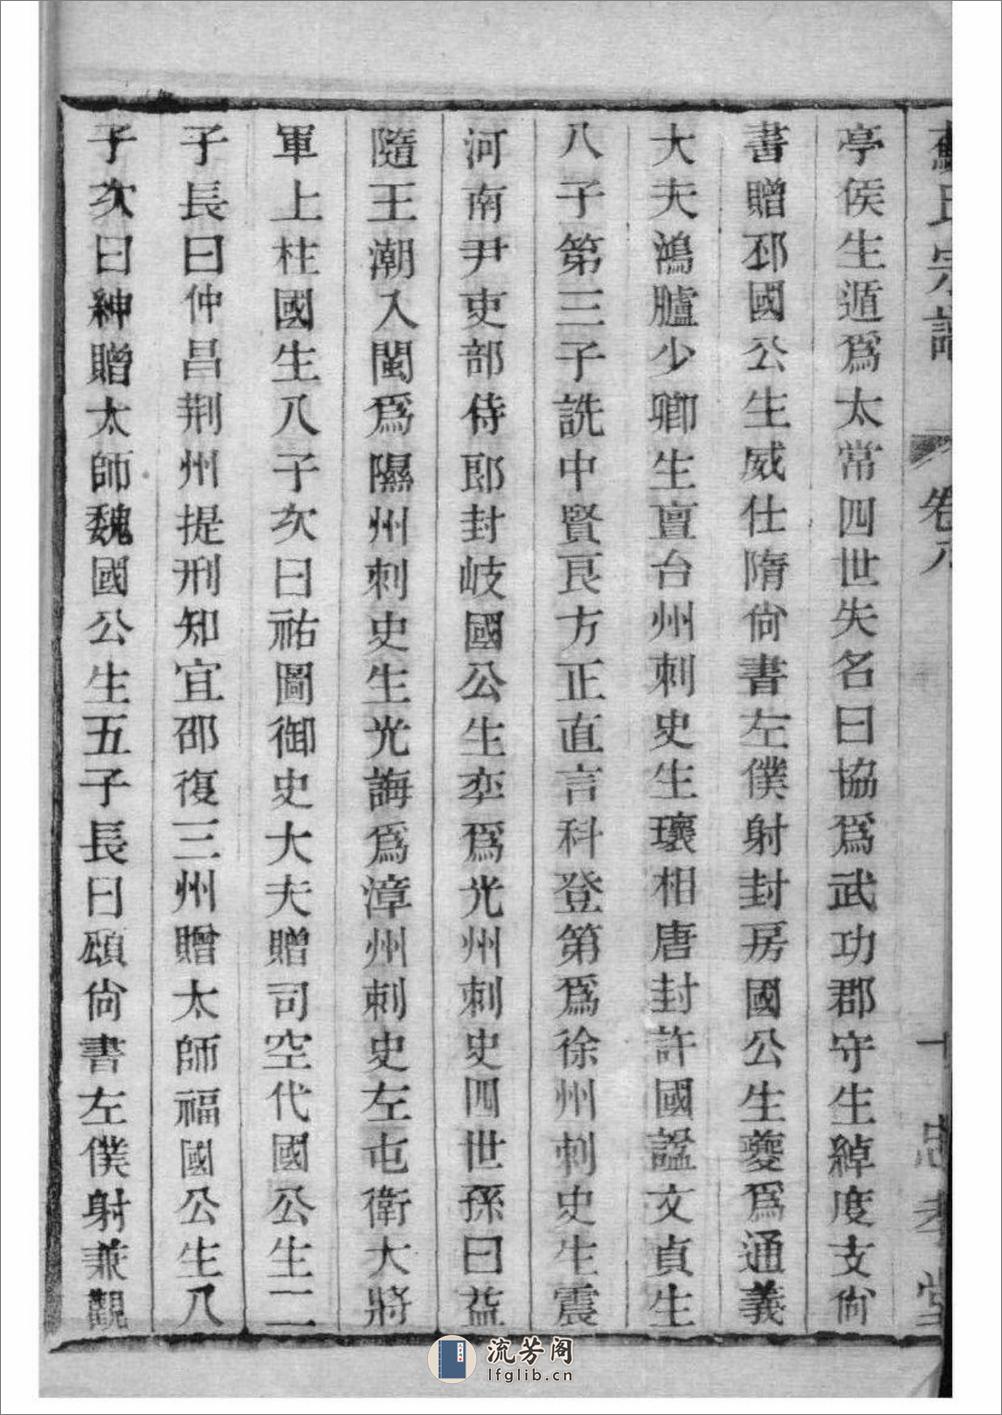 蘇氏宗譜 卷八 十 忠孝堂
亭侯生遁爲太常四世失名曰協爲武功郡守生綽度支尙
書贈邳國公生威仕隋尙書左僕射封房國公生夔爲通義
大夫鴻臚少卿生亶台州刺史生瓌相唐封許國謚文貞生
八子第三子詵中賢良方正直言科登第爲徐州刺史生震
河南尹吏部侍郎封岐國公生奕爲光州刺史四世孫曰益
隨王潮入閩爲隰州刺史生光誨爲漳州刺史左屯衛大將
軍上柱國生八子次曰祐圖御史大夫贈司空代國公生二
子長曰仲昌荆州提刑知宜邵復三州贈太師福國公生八
子次曰紳贈太師魏國公生五子長曰頌尙書左僕射兼觀
流芳阁
lfglib.cn